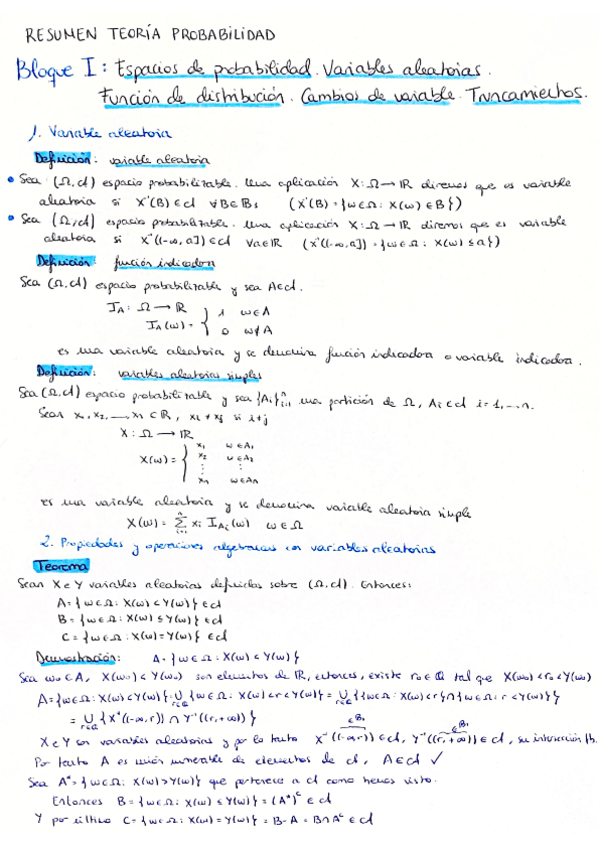 RESUMEN TEORÍA PROBABILIDAD
Bloque I: Espacios de probabilidad. Variables aleatorias.
Función de distribución. Cambios de variable. Truncamientos.
1. Variable aleatoria
Definición: variable aleatoria
• Sea (Ω, 𝒜) espacio probabilizable. Una aplicación X: Ω → ℝ diremos que es variable
aleatoria si X⁻¹(B) ∈ 𝒜 ∀B ∈ B₁ (X⁻¹(B) = {ω ∈ Ω: X(ω) ∈ B})
• Sea (Ω, 𝒜) espacio probabilizable. Una aplicación X: Ω → ℝ diremos que es variable
aleatoria si X⁻¹((-∞, a]) ∈ 𝒜 ∀a ∈ ℝ (X⁻¹((-∞, a]) = {ω ∈ Ω: X(ω) ≤ a})
Definición: función indicadora
Sea (Ω, 𝒜) espacio probabilizable y sea A ∈ 𝒜.
I_A: Ω → ℝ
I_A(ω) = { 1 ω ∈ A
0 ω ∉ A
es una variable aleatoria y se denomina función indicadora o variable indicadora.
Definición: variables aleatorias simples
Sea (Ω, 𝒜) espacio probabilizable y sea {Aᵢ}ⁿᵢ₌₁ una partición de Ω, Aᵢ ∈ 𝒜 i = 1, ..., n.
Sean x₁, x₂, ..., xₙ ∈ ℝ, xᵢ ≠ xⱼ si i ≠ j
X: Ω → ℝ
X(ω) = { x₁ ω ∈ A₁
x₂ ω ∈ A₂
⋮ ⋮
xₙ ω ∈ Aₙ
es una variable aleatoria y se denomina variable aleatoria simple
X(ω) = Σⁿᵢ₌₁ xᵢ I_Aᵢ(ω) ω ∈ Ω
2. Propiedades y operaciones algebraicas con variables aleatorias
Teorema
Sean X e Y variables aleatorias definidas sobre (Ω, 𝒜). Entonces:
A = {ω ∈ Ω: X(ω) < Y(ω)} ∈ 𝒜
B = {ω ∈ Ω: X(ω) ≤ Y(ω)} ∈ 𝒜
C = {ω ∈ Ω: X(ω) = Y(ω)} ∈ 𝒜
Demostración: A = {ω ∈ Ω: X(ω) < Y(ω)}
Sea ω₀ ∈ A, X(ω₀) < Y(ω₀) son elementos de ℝ, entonces, existe r₀ ∈ ℚ tal que X(ω₀) < r₀ < Y(ω₀)
A = {ω ∈ Ω: X(ω) < Y(ω)} = ∪_{r∈ℚ} {ω ∈ Ω: X(ω) < r < Y(ω)} = ∪_{r∈ℚ} {{ω ∈ Ω: X(ω) < r} ∩ {ω ∈ Ω: r < Y(ω)}}
= ∪_{r∈ℚ} {X⁻¹((-∞, r)) ∩ Y⁻¹((r, +∞))}
∈ B₁ ∈ B₁
X e Y son variables aleatorias y por lo tanto X⁻¹((-∞, r)) ∈ 𝒜, Y⁻¹((r, +∞)) ∈ 𝒜, su intersección tb.
Por tanto A es unión numerable de elementos de 𝒜, A ∈ 𝒜 ✓
Sea A* = {ω ∈ Ω: X(ω) > Y(ω)} que pertenece a 𝒜 como hemos visto.
Entonces B = {ω ∈ Ω: X(ω) ≤ Y(ω)} = (A*)ᶜ ∈ 𝒜
Y por último C = {ω ∈ Ω: X(ω) = Y(ω)} = B - A = B ∩ Aᶜ ∈ 𝒜